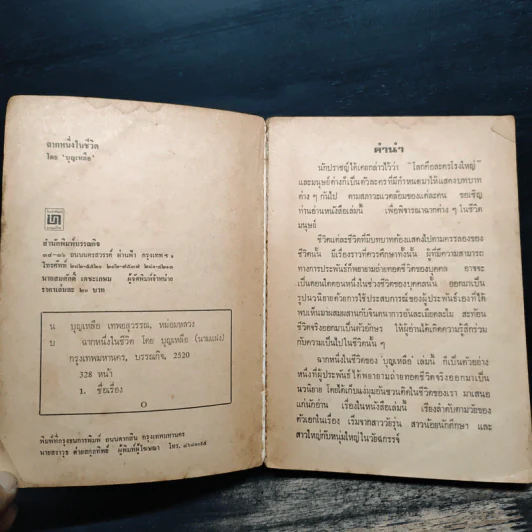 ฉากหนึ่งในชีวิต
โดย 'บุญเหลือ'
สำนักพิมพ์บรรณกิจ
๓๔-๓๖ ถนนนครสวรรค์ ผ่านฟ้า กรุงเทพ ฯ
โทรศัพท์
นายสมศักดิ์ เตชะเกษม ผู้จัดพิมพ์จำหน่าย
ราคาเล่มละ ๒๐ บาท
น บุญเหลือ เทพยสุวรรณ, หม่อมหลวง
บ ฉากหนึ่งในชีวิต โดย บุญเหลือ (นามแฝง)
กรุงเทพมหานคร, บรรณกิจ, 2520
328 หน้า
1. ชื่อเรื่อง
พิมพ์ที่กรุงธนการพิมพ์ ถนนตากสิน กรุงเทพมหานคร
นายสราวุธ ผู้พิมพ์ผู้โฆษณา โทร.
คำนำ
นักปราชญ์ได้เคยกล่าวไว้ว่า "โลกคือละครโรงใหญ่"
และมนุษย์ต่างก็เป็นตัวละครที่มีกำหนดมาให้แสดงบทบาท
ต่าง ๆ กันไป ตามสภาวะแวดล้อมของแต่ละคน ขอเชิญ
ท่านอ่านหนังสือเล่มนี้ เพื่อพิจารณาฉากต่าง ๆ ในชีวิต
มนุษย์
ชีวิตแต่ละชีวิตที่มีบทบาทต้องแสดงไปตามครรลองของ
ชีวิตนั้น มีเรื่องราวที่ควรศึกษาทั้งนั้น ผู้ที่มีความสามารถ
ทางการประพันธ์ก็พยายามถ่ายทอดชีวิตของบุคคล อาจจะ
เป็นตอนใดตอนหนึ่งในช่วงชีวิตของบุคคลนั้น ออกมาเป็น
รูปนวนิยายด้วยการใช้ประสบการณ์ของผู้ประพันธ์เองที่ได้
พบเห็นมาผสมผสานกับจินตนาการอันละเมียดละไม สะท้อน
ชีวิตจริงออกมาเป็นตัวอักษร ให้ผู้อ่านได้เกิดความรู้สึกร่วม
กับความเป็นไปในชีวิตนั้น ๆ
ฉากหนึ่งในชีวิตของ 'บุญเหลือ' เล่มนี้ ก็เป็นตัวอย่าง
หนึ่งที่ผู้ประพันธ์ ได้พยายามถ่ายทอดชีวิตจริงออกมาเป็น
นวนิยาย โดยได้เก็บแง่มุมอันชวนคิดในชีวิตของเรา มาเสนอ
แก่นักอ่าน เรื่องในหนังสือเล่มนี้ เรียงลำดับตามวัยของ
ตัวเอกในเรื่อง เริ่มจากสาววัยรุ่น สาวน้อยนักศึกษา และ
สาวใหญ่กับหนุ่มใหญ่ในวัยฉกรรจ์